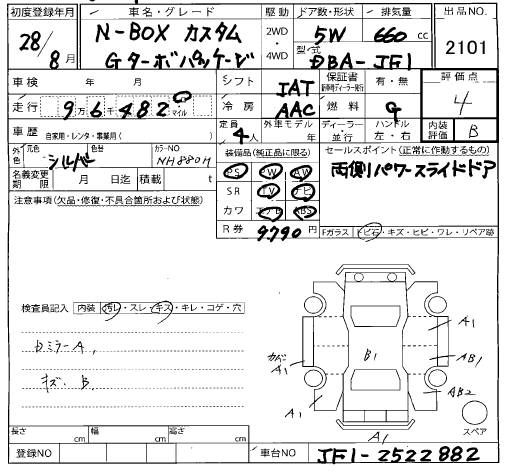 初度登録年月 車名・グレード 駆動 ドア数・形状 排気量 出品NO.
28/8月 N-BOX カスタム Gターボパッケージ 2WD・4WD 5W 660cc 2101
型式 DBA-JF1
車検 年 月 シフト IAT 保証書 有・無 評価点 4
走行 9万6千482 マイル 冷房 AAC 燃料 G
車歴 自家用・レンタ・事業用( 定員 4人 外車モデル 年 ディーラー 並行 ハンドル 左・右 内装評価 B
外色 元色 シルバー 色替 カラーNO NH880M 装備品(純正品に限る) セールスポイント(正常に作動するもの)
名義変更期限 月 日迄 積載 t PS PW AW 両側パワースライドドア
注意事項(欠品・修復・不具合箇所および状態) SR TV ナビ
カワ エアB ABS
R券 9790円 Fガラス トビ石・キズ・ヒビ・ワレ・リペア跡
検査員記入 内装 汚レ・スレ・キズ・キレ・コゲ・穴
A1
ミラーA,
カバーA1 B1 AB1
キズ. B
A1 AB2
スペア
A1
長さ cm 幅 cm 高さ cm
登録NO 車台NO JF1-2522882